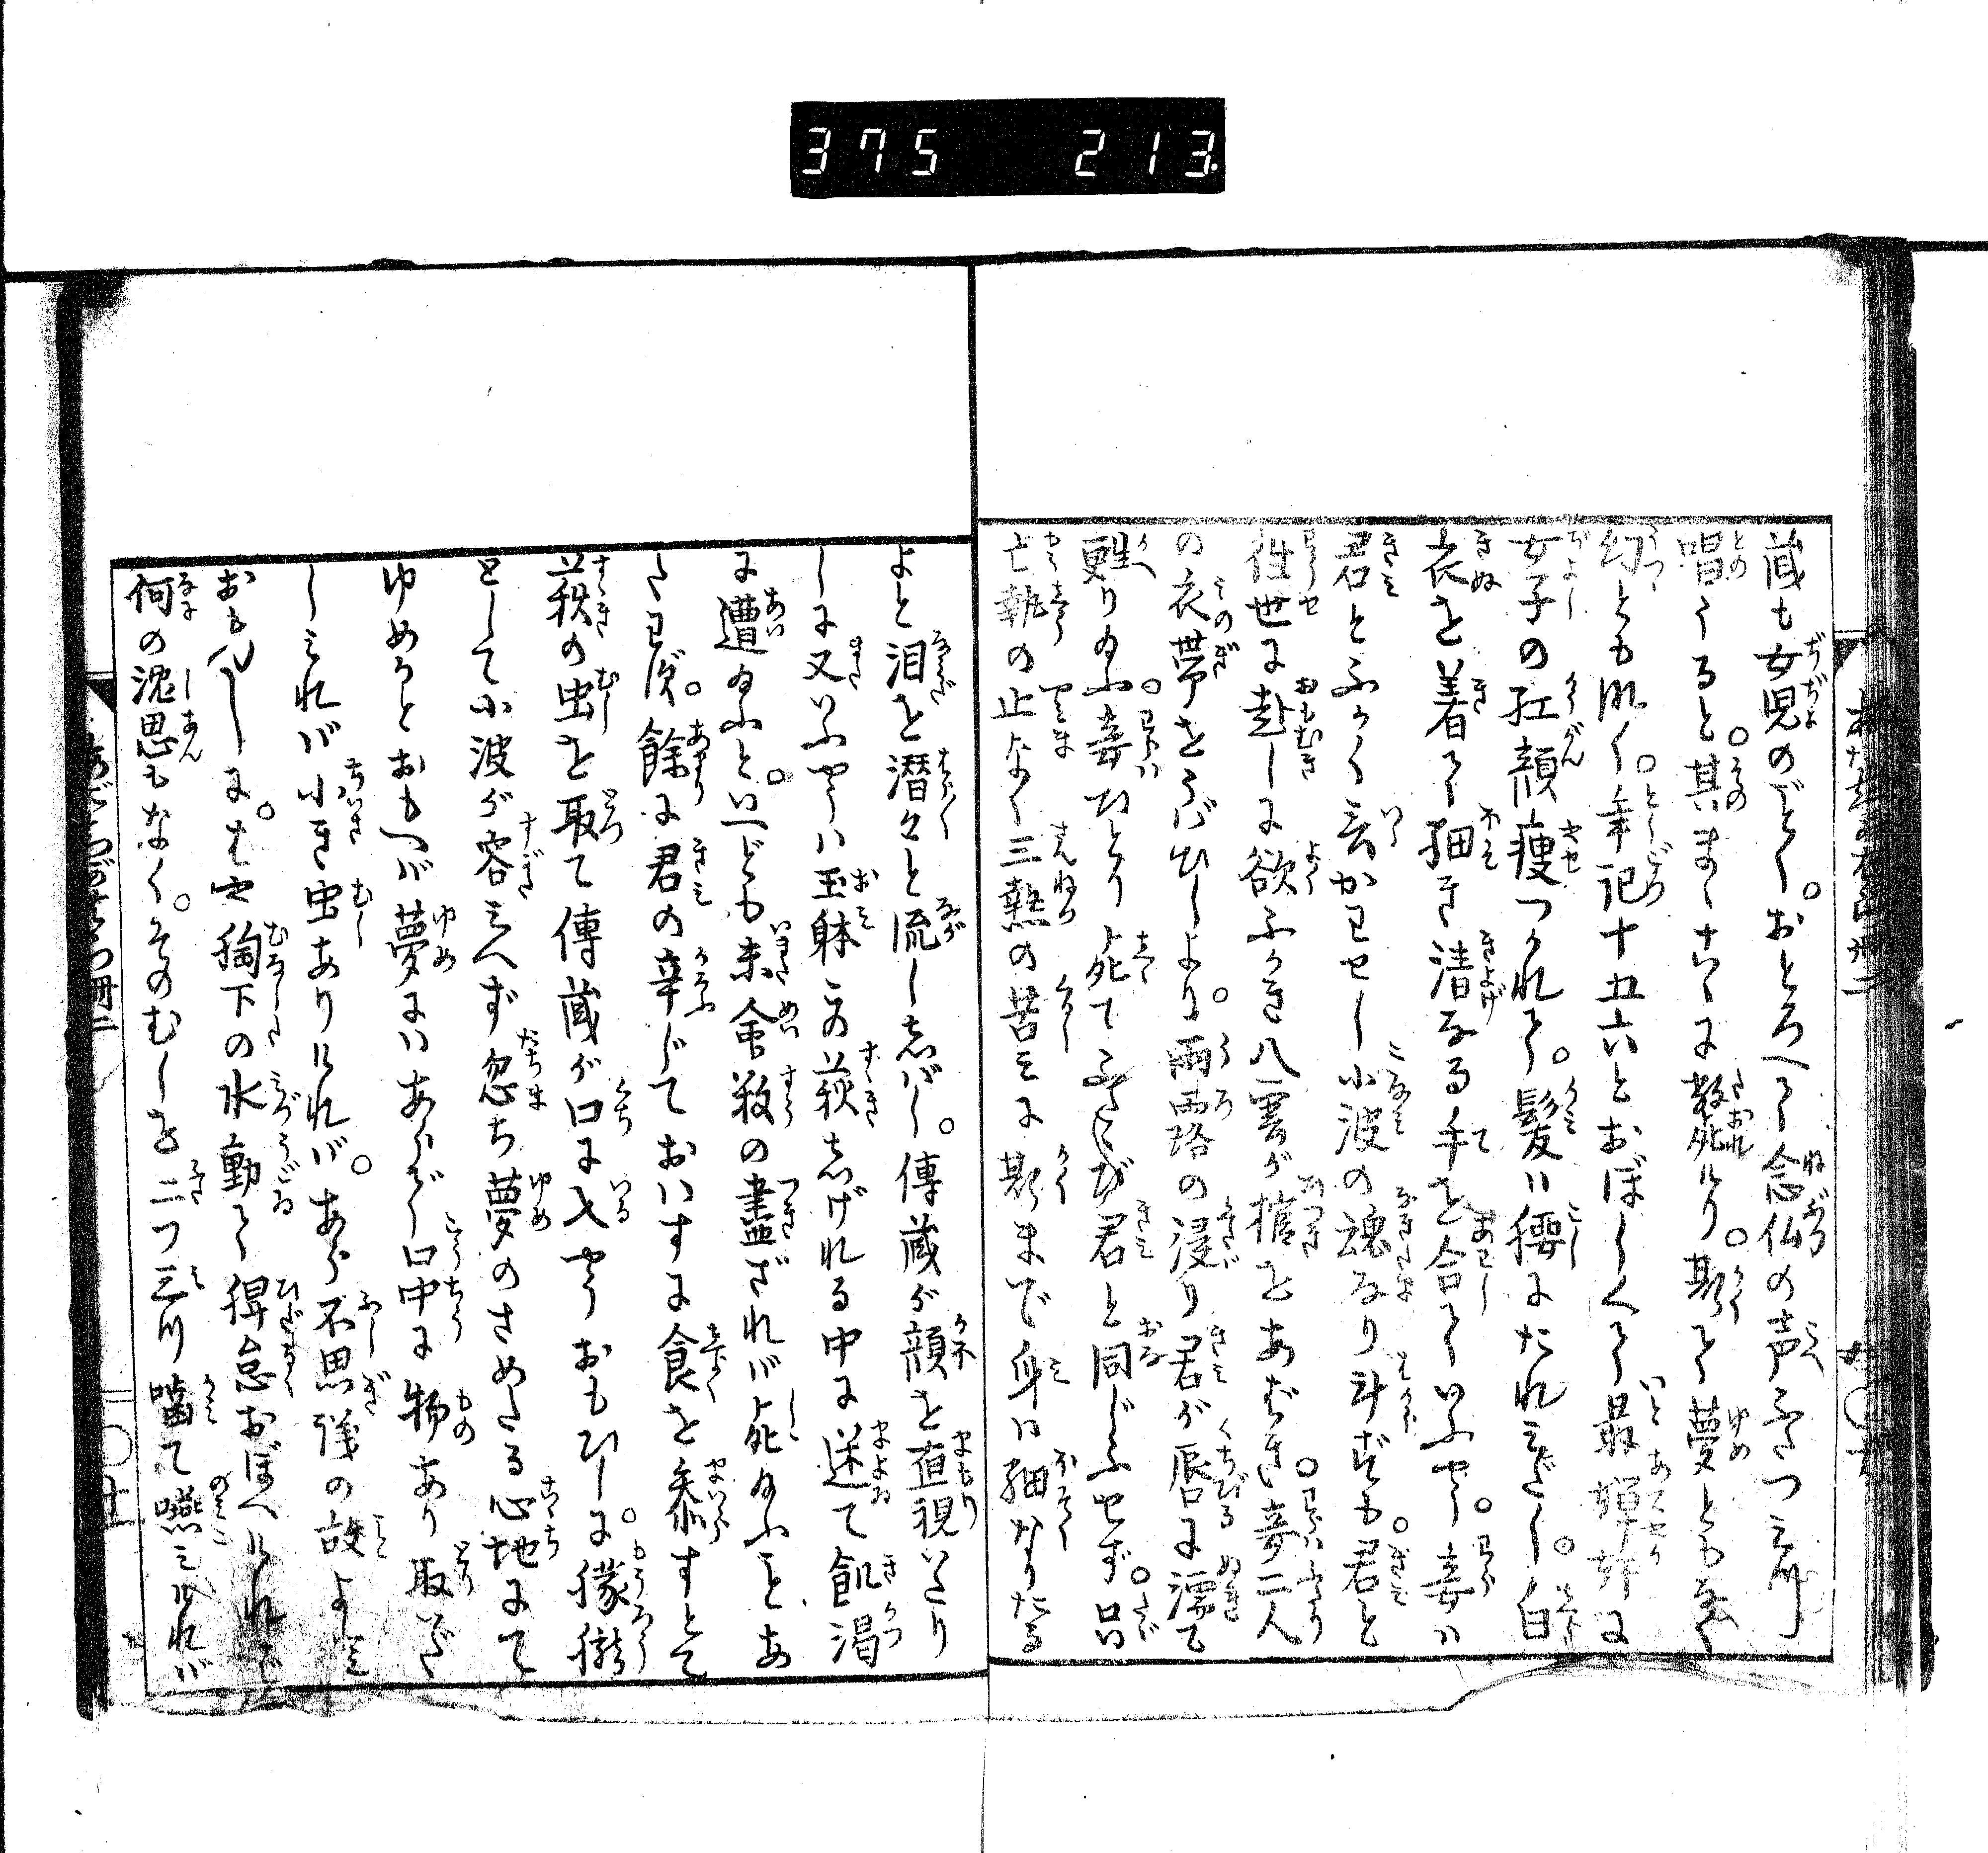 375 213
蔵も女児のごとく。おとろへて念仏の声ふたつ三川
唱うると。其まゝこゝに斃死けり。斯て夢ともなく
幻とも那く。年記十五六とおぼしくて最嬋妍に
女子の紅顔痩つかれて。髪は腰にたれみだし。白
衣を着て細き清なる手を合していふやう。妾ハ
君とふかく云かわせし小波の魂なり斗ずも君と
往世に赴しに欲ふかき八雲が棺をあばき。妾二人
の衣帯をうばひしより。雨露の浸り君が唇に濡て
甦り給ふ妾ひとり死てふたゝび君と同じふせず。只
亡執の止なく三熱の苦みに斯まで身ハ細なりたる
よと泪を潜々と流ししばし。傳蔵が顔を直視いたり
しに又いふやうハ玉躰この萩しげれる中に迷て飢渇
に遭給ふと。いへども未命数の盡ざれバ死給ふことあ
たわず。餘に君の辛じておハすに食を参すとて
萩の虫を取て傳蔵が口に入やうおもひしに。朦朧
として小波が容みへず忽ち夢のさめたる心地にて
ゆめかとおもへバ夢にハあらで口中に物あり取いだ
しみれバ小き虫ありけれバ。あら不思議の故よと
おもひしに。はや胸下の水動て得怠おぼへければ
何の思もなく。そのむしを二つ三川噛て嚥みければ